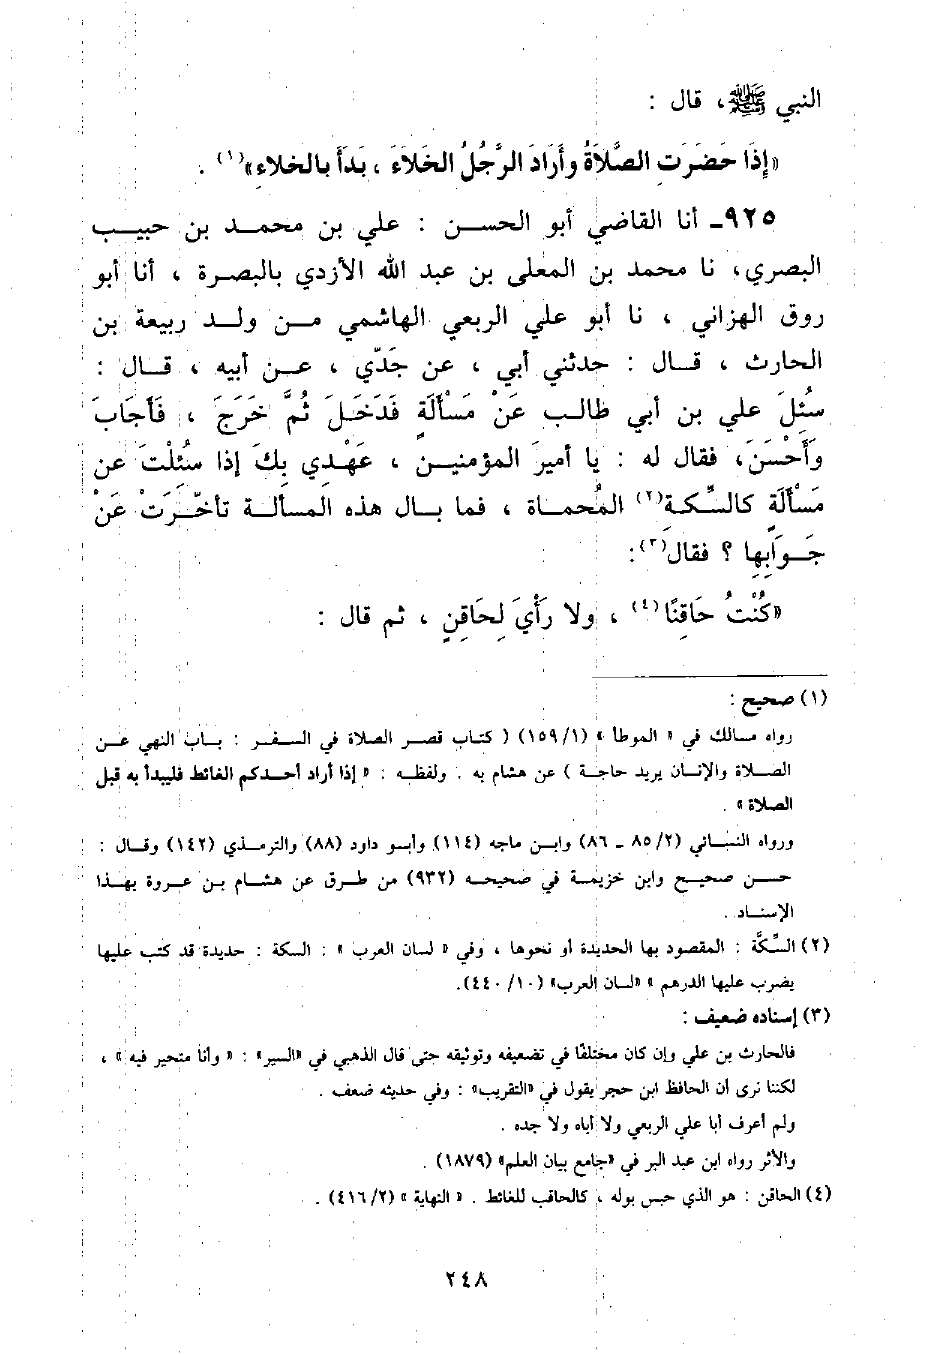 النبي ﷺ، قال :
«إِذَا حَضَرَتِ الصَّلاَةُ وأَرَادَ الرَّجُلُ الخَلاَءَ ، بَدَأَ بالخلاءِ»(١) .
٩٢٥ـ أنا القاضي أبو الحسن : علي بن محمد بن حبيب
البصري، نا محمد بن المعلى بن عبد الله الأزدي بالبصرة ، أنا أبو
روق الهزاني ، نا أبو علي الربعي الهاشمي من ولد ربيعة بن
الحارث ، قال : حدثني أبي ، عن جَدّي ، عن أبيه ، قال :
سُئِلَ علي بن أبي طالب عَنْ مَسْأَلَةٍ فَدَخَلَ ثُمَّ خَرَجَ ، فَأَجَابَ
وَأَحْسَنَ، فقال له : يا أميرَ المؤمنين ، عَهْدِي بِكَ إذا سُئِلْتَ عن
مَسْأَلَةٍ كالسِّكةِ(٢) المُحماة ، فما بال هذه المسألة تأخّرَتْ عَنْ
جَوَابِها ؟ فقال(٣):
«كُنْتُ حَاقِنًا(٤) ، ولا رَأْيَ لِحَاقِنٍ ، ثم قال :
(١) صحيح :
رواه مالك في « الموطأ » (١/ ١٥٩) ( كتاب قصر الصلاة في السفر : باب النهي عن
الصلاة والإنسان يريد حاجة ) عن هشام به . ولفظه : « إذا أراد أحدكم الغائط فليبدأ به قبل
الصلاة » .
ورواه النسائي (٢/ ٨٥ ـ ٨٦) وابن ماجه (١١٤) وأبو داود (٨٨) والترمذي (١٤٢) وقال :
حسن صحيح وابن خزيمة في صحيحه (٩٣٢) من طرق عن هشام بن عروة بهذا
الإسناد .
(٢) السِّكَّة : المقصود بها الحديدة أو نحوها ، وفي « لسان العرب » : السكة : حديدة قد كتب عليها
يضرب عليها الدرهم » «لسان العرب» (١٠/ ٤٤٠).
(٣) إسناده ضعيف :
فالحارث بن علي وإن كان مختلفًا في تضعيفه وتوثيقه حتى قال الذهبي في «السير» : « وأنا متحير فيه » ،
لكننا نرى أن الحافظ ابن حجر يقول في «التقريب» : وفي حديثه ضعف .
ولم أعرف أبا علي الربعي ولا أباه ولا جده .
والأثر رواه ابن عبد البر في «جامع بيان العلم» (١٨٧٩) .
(٤) الحاقن : هو الذي حبس بوله ، كالحاقب للغائط . « النهاية » (٢/ ٤١٦) .
٢٤٨